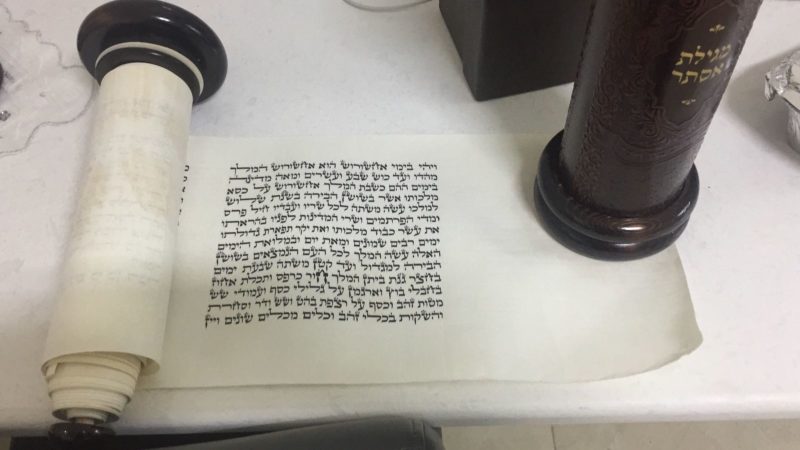 ויהי בימי אחשורוש הוא אחשורוש המלך
מהדו ועד כוש שבע ועשרים ומאה מדינה
בימים ההם כשבת המלך אחשורוש על כסא
מלכותו אשר בשושן הבירה בשנת שלוש
למלכו עשה משתה לכל שריו ועבדיו חיל פרס
ומדי הפרתמים ושרי המדינות לפניו בהראתו
את עשר כבוד מלכותו ואת יקר תפארת גדולתו
ימים רבים שמונים ומאת יום ובמלואת הימים
האלה עשה המלך לכל העם הנמצאים בשושן
הבירה למגדול ועד קטן משתה שבעת ימים
בחצר גנת ביתן המלך חור כרפס ותכלת אחוז
בחבלי בוץ וארגמן על גלילי כסף ועמודי שש
מטות זהב וכסף על רצפת בהט ושש ודר וסחרת
והשקות בכלי זהב וכלים מכלים שונים ויין
מגילת
אסתר